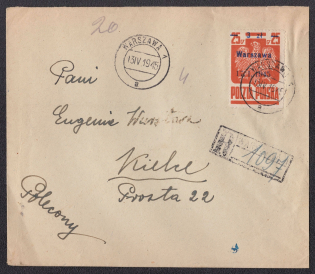 20.
WARSZAWA 1
13 IV 1945
a
25 25
Warszawa
POCZTA POLSKA
4
Pani
Eugenia Warszawa
Kielce
Prosta 22
Polecony
1094